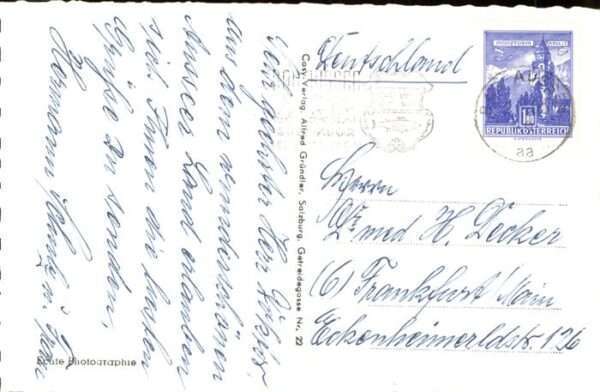 Sehr geehrter Herr Doktor!
aus dem wunderschönen
Ausseer Land erlauben
sich Ihnen die besten
Grüße zu senden,
Hermann
Echte Photographie
Cosy-Verlag Alfred Gründler, Salzburg, Getreidegasse Nr. 22
Deutschland
MÜNZTURM HALL
1.80
REPUBLIK ÖSTERREICH
Herrn
Dr. med H. Decker
(6) Frankfurt/Main
Eckenheimerldstr. 126